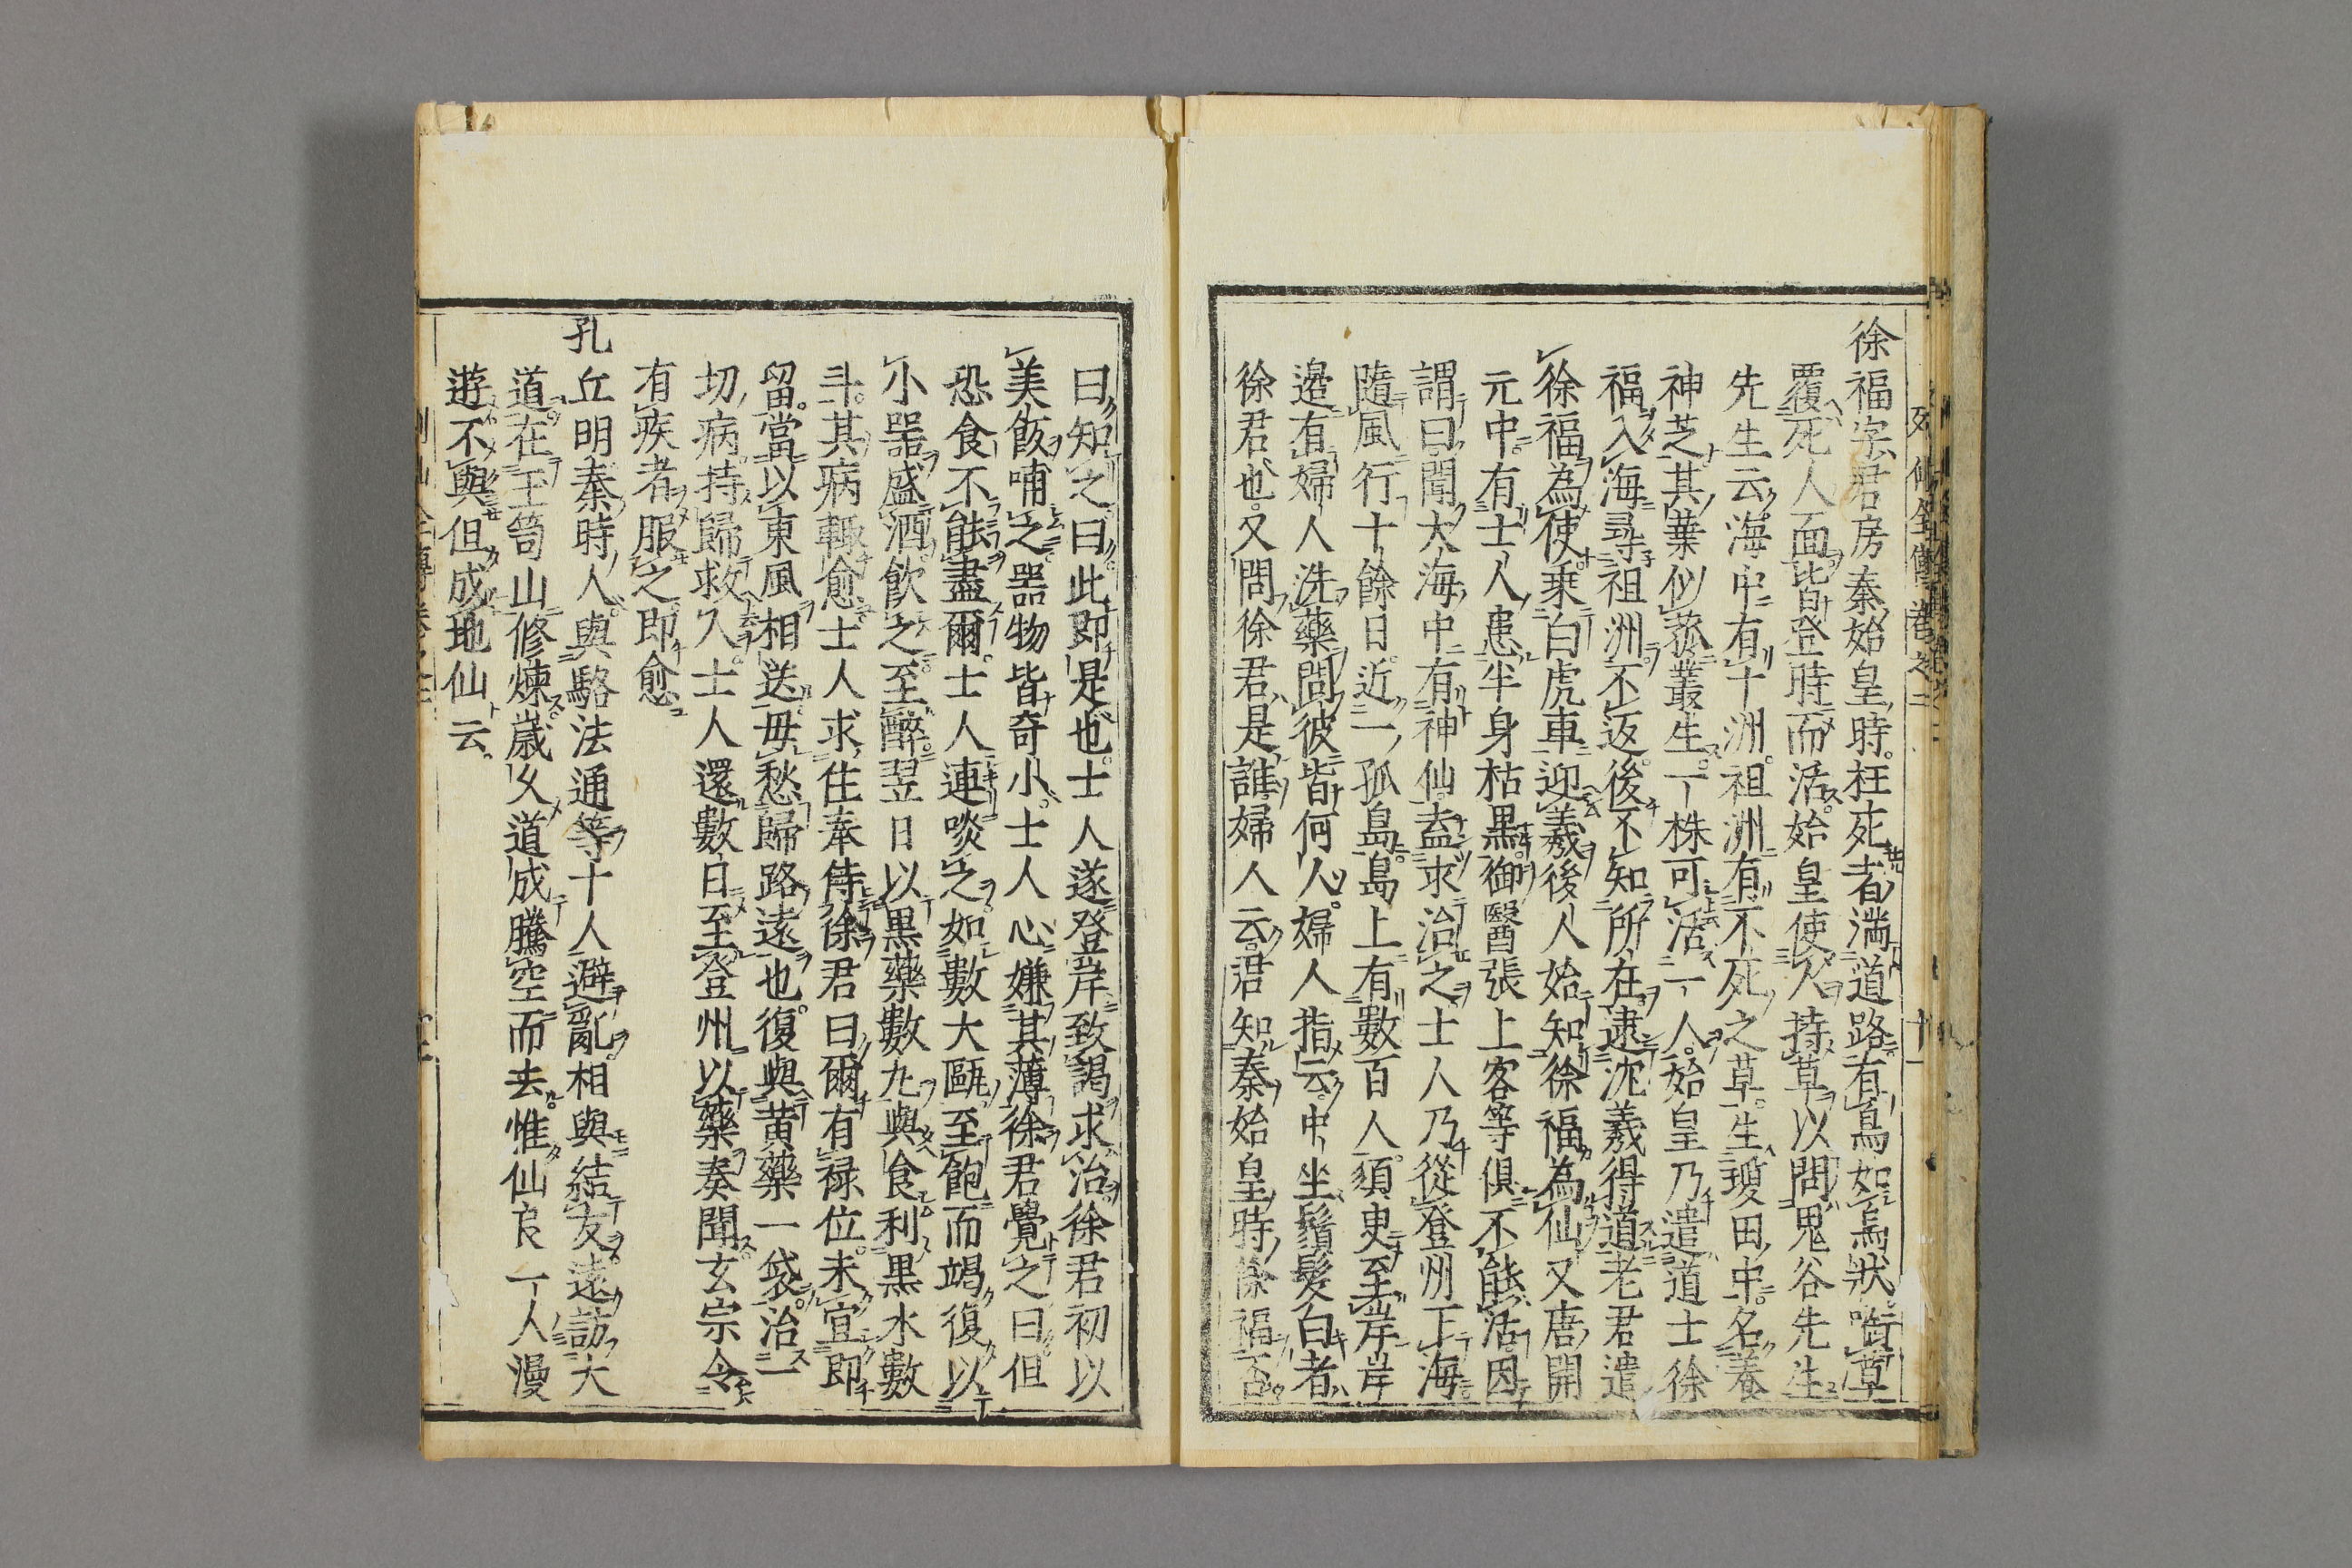 徐福字君房秦始皇時枉死者滿道路有鳥如烏狀啣草
覆死人面皆登時而活始皇使人持草以問鬼谷先生
先生云海中有十洲祖洲有不死之草生瓊田中名養
神芝其葉似菰叢生一株可活一人始皇乃遣道士徐
福入海尋祖洲不返後不知所在逮沈羲得道老君遣
徐福為使乘白虎車迎羲後人始知徐福為仙又唐開
元中有士人患半身枯黒御醫張上客等俱不能活因
謂曰聞大海中有神仙盍求治之士人乃從登州下海
隨風行十餘日近一孤島島上有數百人須臾至岸岸
邉有婦人洗藥問彼皆何人婦人指云中坐鬚髮白者
徐君也又問徐君是誰婦人云君知秦始皇時徐福否
曰知之曰此即是也士人遂登岸致謁求治徐君初以
美飯哺之器物皆奇小士人心嫌其薄徐君覺之曰但
恐食不能盡爾士人連啖之如數大甌至飽而竭復以
小噐盛酒飲之至醉翌日以黒藥數丸與食利黒水數
斗其病輙愈士人求住奉侍徐君曰爾有禄位未宜即
留當以東風相送毋愁歸路遠也復與黄藥一袋治一
切病持歸救人士人還數日至登州以藥奏聞玄宗令
有疾者服之即愈
孔丘明秦時人與駱法通等十人避亂相與結友遠訪大
道在玉笥山修煉歳久道成騰空而去惟仙良一人漫
遊不與但成地仙云